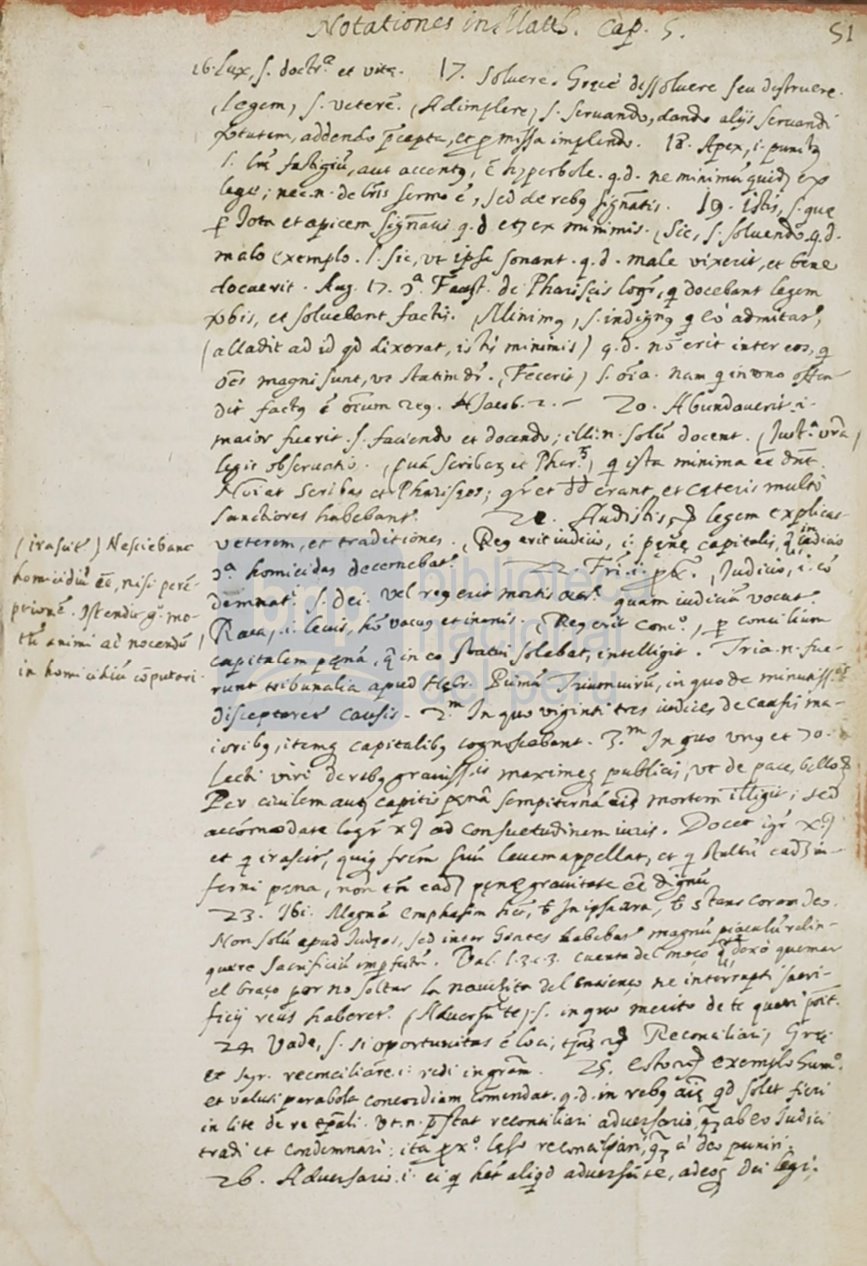 Notationes in Matth. Cap. 5.
51
16. Lux, s. doctrᵃ et vita. 17. Soluere. Grecè dissoluere seu destruere.
(legem) s. veterē. (Adimplere) s. seruando, dando alijs seruandi
addendo p̄cepta, et ꝓmissa implendo. 18. Apex, i.
s. fastigiū, aut accentꝰ, ē hyperbole. q.d. ne minimū quidē ex
lege; nec .n. de lr̄is sermo ē, sed de rebꝰ signatis. 19. istis, s. quę
ꝑ Iota et apicem q.d. ex minimis. (Sic, s. soluendo q.d.
malo exemplo. s. sic, vt ipsa sonant. q.d. male vixerit, et bene
docuerit. Aug. 17. ɔᵃ. Faust. de Phariseis loqr̄, q docebant legem
vobis, et soluebant factis. (Minimꝰ, s. indignꝰ q eò admitar̄,
(alludit ad id qd dixerat, istis minimis) q.d. nō erit inter eos, q
oēs magni sunt, vt statim dr̄. (Fecerit) s. oīa. Nam q in vno offen
dit factꝰ ē oīum reꝰ. Jacob. 2. – 20. Abundauerit .i.
maior fuerit. s. faciendo et docendo; illi .n. solū docent. (Justᵃ vrā)
legis obseruatio. (quā Scribarū et Phar.) q ista minima eē dn̄t.
Noīat Scribas et Phariseos; qr̄ et erant, et cęteris multò
sanctiores habebant̄. 21. Audistis, legem explicas-
veterem, et traditiones. (Reꝰ erit iudicio, i. pęnę capitalis, q̄ in iudicio
ɔᵃ. homicidas decernebat̄. 22. Frī .i. ꝓxº. (Judicio, i. cō
demnat̄. s. dei. Vel reꝰ erit mortis quam iudiciū vocat̄.
Raca, .i. leuis, hō vacuꝰ et inanis. (Reꝰ erit Concº.) ꝑ concilium
capitalem pęnā, q̄ in eo statui solebat, intelligit. Tria .n. fue-
runt tribunalia apud Hebr. Primū Triumuirū, in quo de minutiss.
disceptarer causis. 2.ᵐ In quo viginti tres iudices de causis ma-
ioribꝰ, itemq capitalibꝰ cognoscebant. 3.ᵐ In quo vnꝰ et 70.
lecti viri de rebꝰ grauissīs maximeq publicis, vt de pace, bello
Per ciuilem autē capitis pęnā sempiternā mortem ītligit; sed
accōmodate loqr̄ ad consuetudinem iuris. Docet igr̄
et q irascit̄, quiq frēm suū leuem appellat, et q stultū eadē in-
ferni pęna, non tn̄ eadē pęnę grauitate eē dignū
23. Ibi. Magnā emphasim hēt, In ipsa ara, stans coram deo.
Non solū apud Judęos, sed inter Gentes habebat̄ magnū piaculū relin-
quere sacrificiū imꝑfectū. Val. l.3.c.3. cuenta del moço q̄ se dexó quemar
el braço por no soltar la nauezita del encienço ne interrupti sacri-
ficij reus haberer̄. (Aduersū te) s. in quo merito de te queri pōit.
24. Vade, s. si oportunitas ē loci, Reconciliari) Grę.
et Syr. reconciliare .i. redi in gratiam. 25. Esto exemplo
et valuti parabola concordiam cōmendat. q.d. in rebꝰ qd solet fieri
in lite de re tp̄ali. Vt .n. p̄stat reconciliari aduersario, q̄ ab eo Judici
tradi et condemnari; ita ꝓxº. laeso reconciliari, q̄ à deo puniri.
26. Aduersario .i. ei q hēt aliqd aduersū te, adeoq Dei legi,
(irascit̄) Nesciebant
homicidiū eē, nisi perē-
ptionē. Ostendit gº. mo-
tū animi ad nocendū,
in homicidiū cōputari.
biblioteca
nacional
del perú